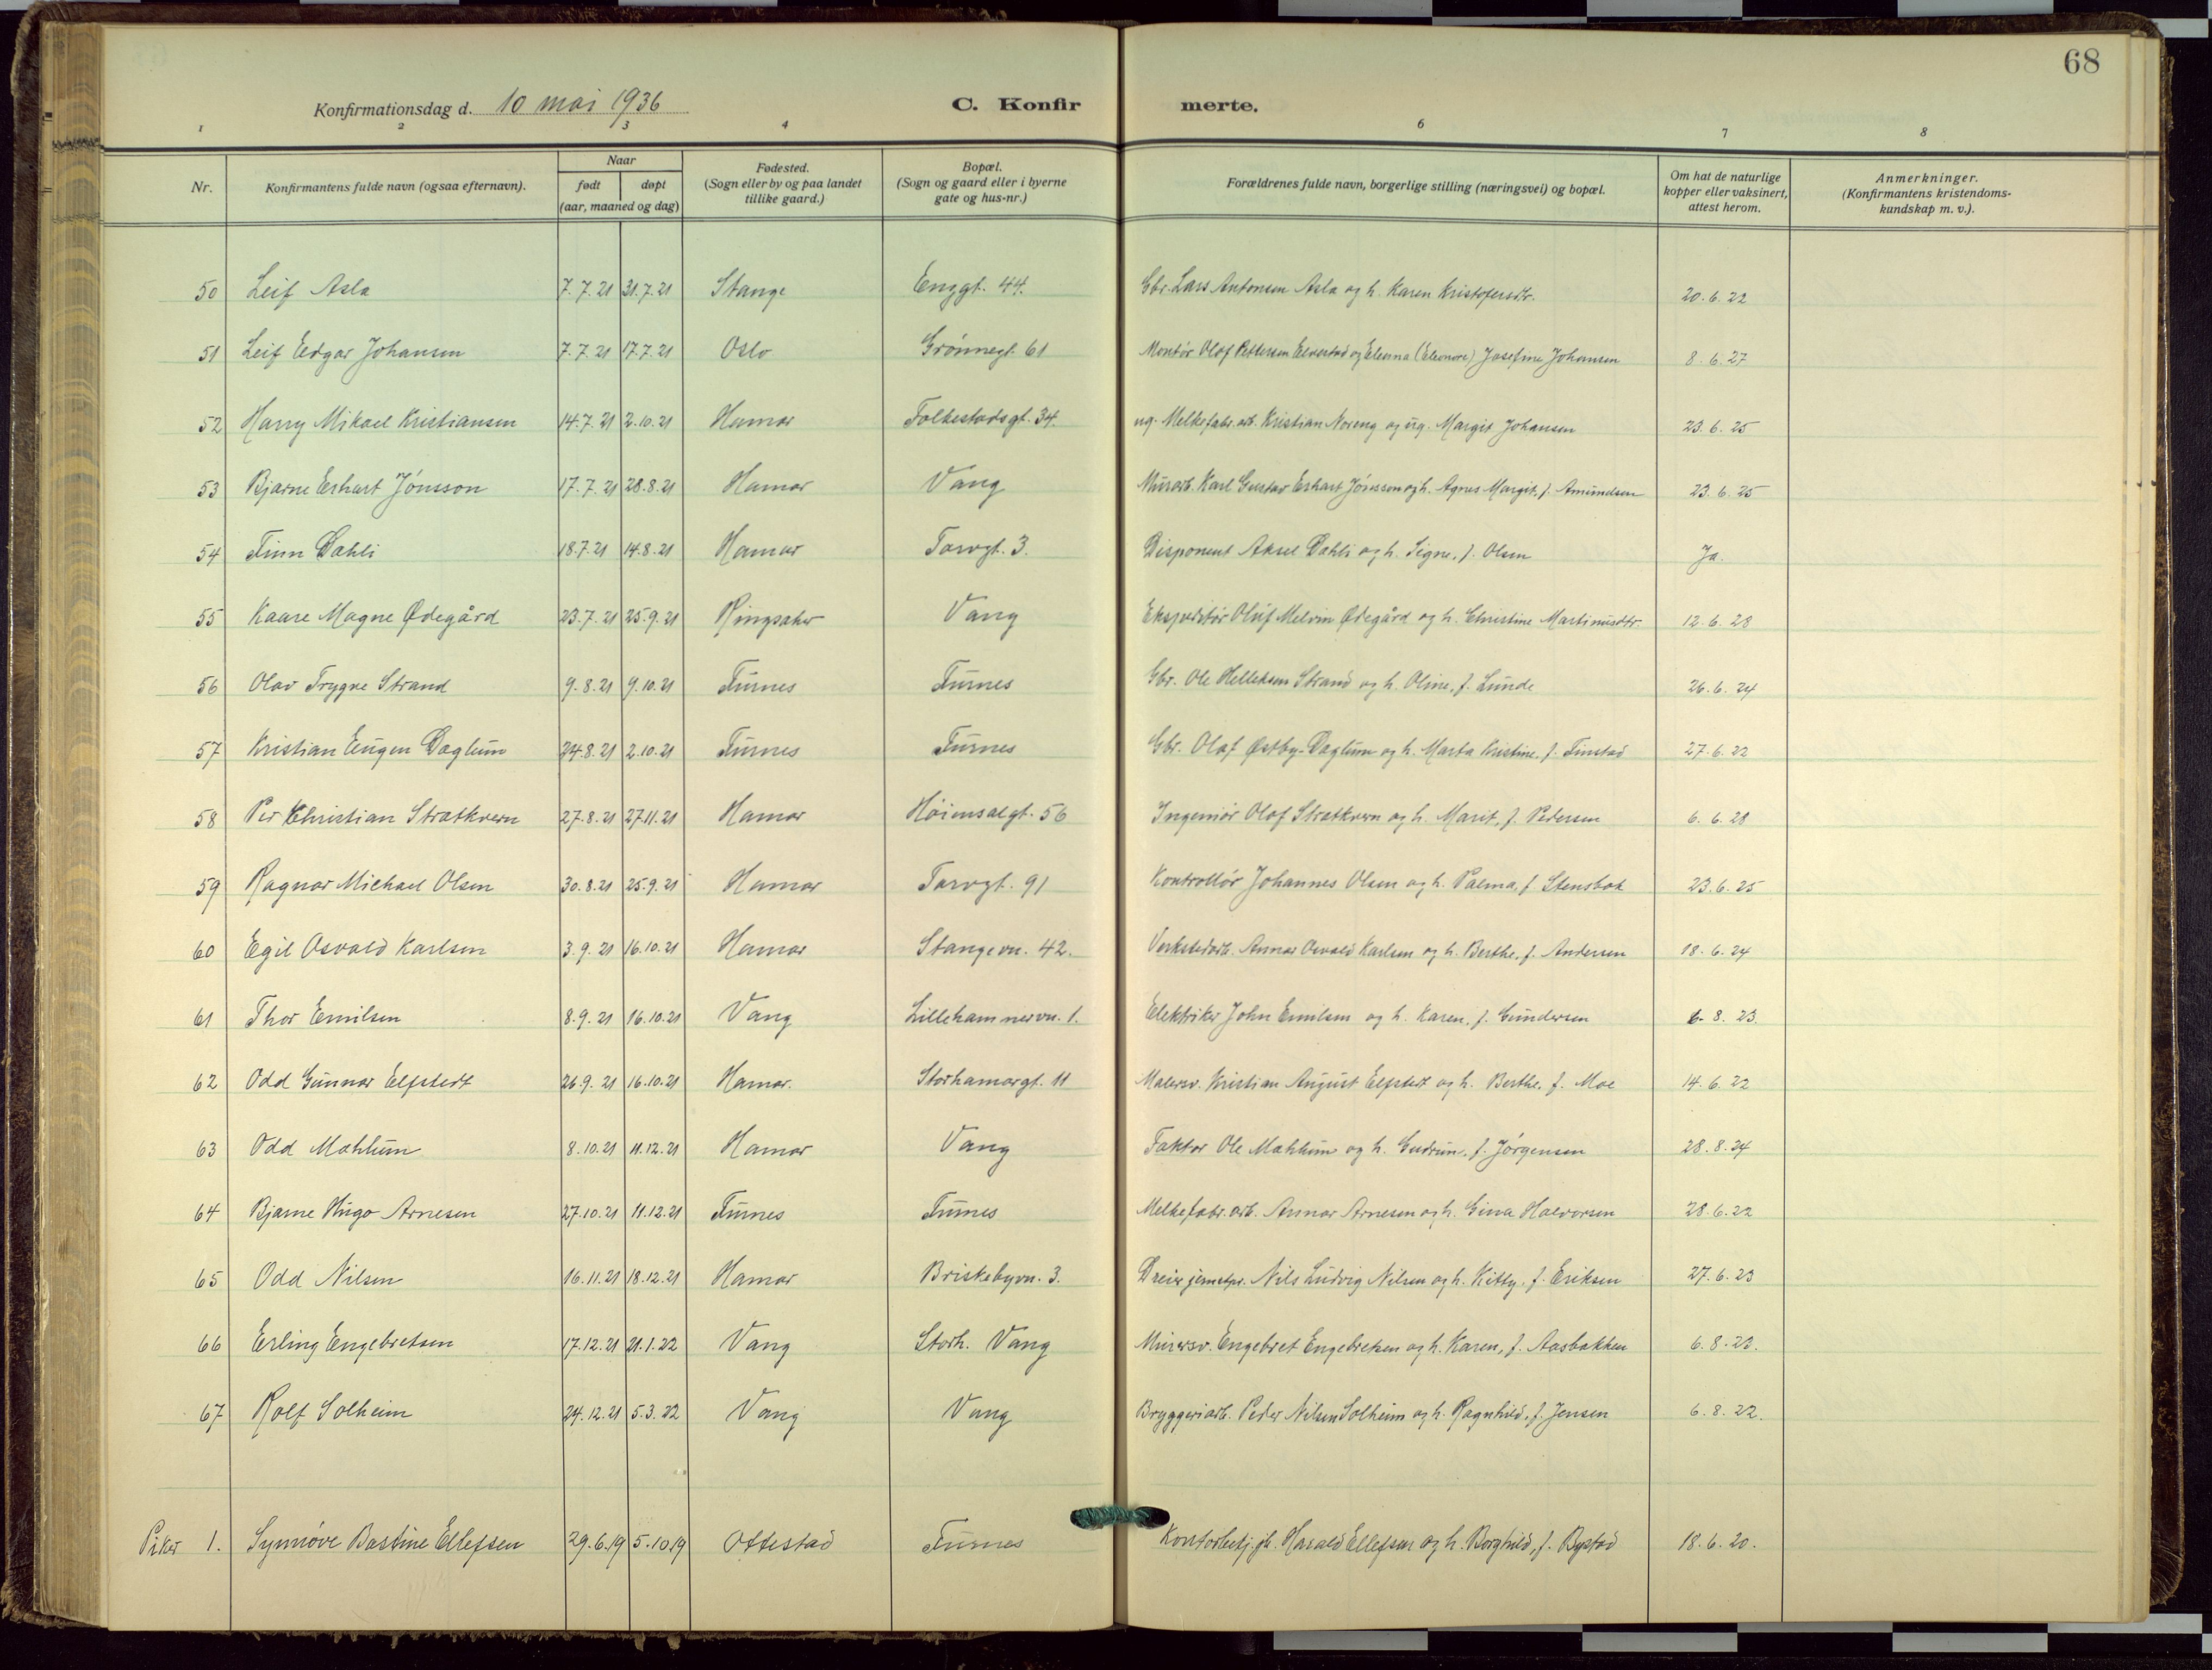 68
Konfirmationsdag d. 10 mai 1936 C. Konfirmerte.
1 2 3 4 6 7 8
Nr. Konfirmantens fulde navn (ogsaa efternavn). Naar født døpt (aar, maaned og dag) Fødested. (Sogn eller by og paa landet tillike gaard.) Bopæl. (Sogn og gaard eller i byerne gate og hus-nr.) Forældrenes fulde navn, borgerlige stilling (næringsvei) og bopæl. Om hat de naturlige kopper eller vaksinert, attest herom. Anmerkninger. (Konfirmantens kristendoms-kundskap m. v.).
50 Leif Asla 7.7.21 31.7.21 Stange Enggt. 44. Gbr. Lars Antonsen Asla og h. Karen Kristofersdtr. 20.6.22
51 Leif Edgar Johansen 7.7.21 17.7.21 Oslo Grønnegt. 61 Montør Olaf Pettersen Elvestad og (Eleonore) Josefine Johansen 8.6.27
52 Harry Mikael Kristiansen 14.7.21 2.10.21 Hamar Folkestadsgt. 34. ug. Melkefabr. arb. Kristian Noreng og ug. Margit Johansen 23.6.25
53 Bjarne Erhart Jónsson 17.7.21 28.8.21 Hamar Vang Murarb. Karl Gustav Erhart Jónsson og h. Agnes Margit, f. Amundsen 23.6.25
54 Finn Dahli 18.7.21 14.8.21 Hamar Torvgt. 3. Disponent Aksel Dahli og h. Signe, f. Olsen Ja.
55 Kaare Magne Ødegård 23.7.21 25.9.21 Ringsaker Vang Ekspeditør Oluf Melvin Ødegård og h. Christine Martinusdtr. 12.6.28
56 Olav Trygve Strand 9.8.21 9.10.21 Furnes Furnes Gbr. Ole Helleksen Strand og h. Oline, f. Lunde 26.6.24
57 Kristian Eugen Daglum 24.8.21 2.10.21 Furnes Furnes Gbr. Olaf Østby-Daglum og h. Marta Kristine, f. Finstad 27.6.22
58 Per Christian Strætkvern 27.8.21 27.11.21 Hamar Høiensalgt. 56 Ingeniør Olaf Strætkvern og h. Marit, f. Pedersen 6.6.28
59 Ragnar Michael Olsen 30.8.21 25.9.21 Hamar Torvgt. 91 Kontrollør Johannes Olsen og h. Palma, f. Stensbak 23.6.25
60 Egil Osvald Karlsen 3.9.21 16.10.21 Hamar Stangevn. 42. Verkstedarb. Annar Osvald Karlsen og h. Berthe, f. Andersen 18.6.24
61 Thor Emilsen 8.9.21 16.10.21 Vang Lillehammervn. 1. Elektriker John Emilsen og h. Karen, f. Gundersen 6.8.23.
62 Odd Gunnar Elfstedt 26.9.21 16.10.21 Hamar. Storhamargt. 11 Malersv. Kristian August Elfstedt og h. Berthe, f. Moe 14.6.22
63 Odd Mæhlum 8.10.21 11.12.21 Hamar Vang Faktor Ole Mæhlum og h. Gudrun, f. Jørgensen 28.8.24
64 Bjarne Hugo Arnesen 27.10.21 11.12.21 Furnes Furnes Melkefabr. arb. Annar Arnesen og h. Gina Halvorsen 28.6.22
65 Odd Nilsen 16.11.21 18.12.21 Hamar Briskebyvn. 3. Dreier Nils Ludvig Nilsen og h. Kitty, f. Eriksen 27.6.23
66 Erling Engebretsen 17.12.21 21.1.22 Vang Storh. Vang Murersv. Engebret Engebretsen og h. Karen, f. Aasbakken 6.8.23.
67 Rolf Solheim 24.12.21 5.3.22 Vang Vang Bryggeriarb. Peder Nilsen Solheim og h. Ragnhild, f. Jensen 6.8.22.
Piker 1. Synnøve Bastine Ellefsen 29.6.19 5.10.19 Ottestad Furnes Harald Ellefsen og h. Borghild, f. Bystad 18.6.20.